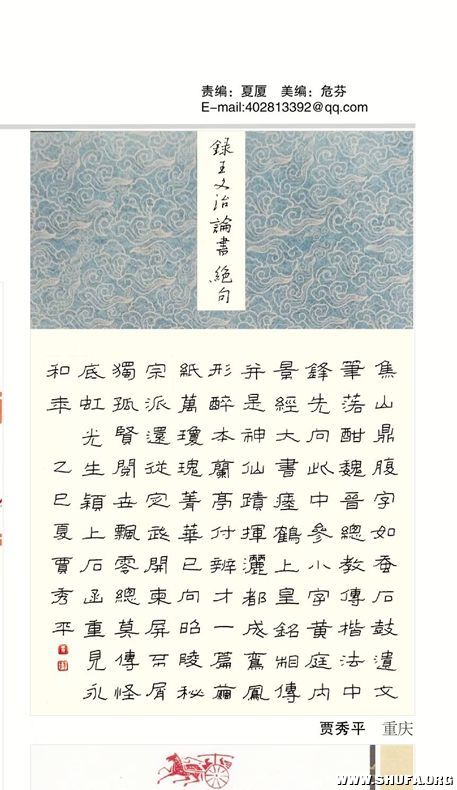 责编：夏厦 美编：危芬
E-mail:402813392@qq.com
録王文治論書絶句
焦山鼎腹字如蚕石鼓遺文
筆落酣魏晉總教傳楷法中
鋒先向此中參小字黃庭内
景經大書瘞鶴上皇銘相傳
并是神仙蹟揮灑都成鸞鳳
形醉本蘭亭付辨才一篇繭
紙萬瓊瑰菁華已向昭陵秘
宗派還從定武開東屏不屑
獨孤賢閱世飄零總莫傳怪
底虹光生穎上石函重見永
和年 乙巳夏賈秀平
贾秀平 重庆
WWW.SHUFA.ORG